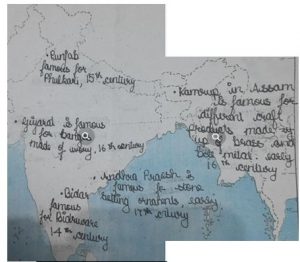 • Punjab
famous for
Phulkari, 15th century
• Gujarat is famous
for
made of ivory, 16th century
• Kamarup in Assam
is famous for
different craft
products made
up of brass and
bell metal. early
16th century
• Andhra Pradesh is
famous for stone
setting ornaments, early
17th century
• Bidar
famous
for Bidriware
14th century